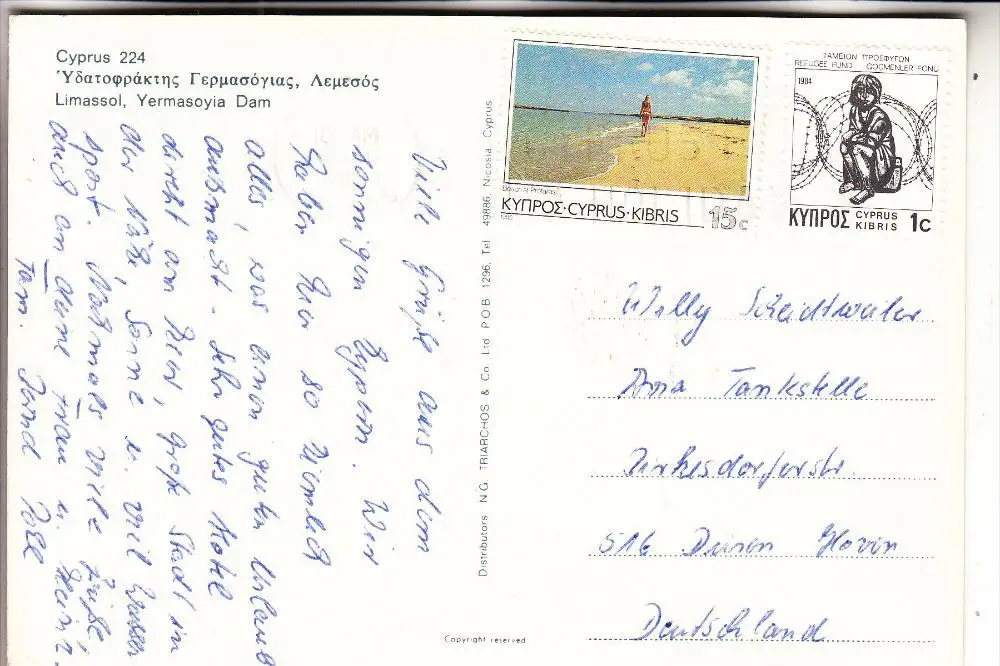 Cyprus 224
Ὑδατοφράκτης Γερμασόγιας, Λεμεσός
Limassol, Yermasoyia Dam
Viele Grüße aus dem
sonnigen Zypern. Wir
haben hier so ziemlich
alles, was einen guten Urlaub
ausmacht - sehr gutes Hotel
direkt am Meer, große Stadt in
der Nähe, Sonne u. viel Wasser
sport. Nochmals viele Grüße,
auch an deine Frau u. Heinz.
Fam.
Distributors N.G. TRIARCHOS & Co. Ltd P.O.B. 1296, Tel. 49886 Nicosia, Cyprus
Copyright reserved
ΚΥΠΡΟΣ·CYPRUS·KIBRIS 15c
1985
ΤΑΜΕΙΟΝ ΠΡΟΣΦΥΓΩΝ
REFUGEE FUND GÖÇMENLER FONU
1984
ΚΥΠΡΟΣ CYPRUS KIBRIS 1c
Willy Scheidtweiler
Tankstelle
516 Düren Hoven
Deutschland